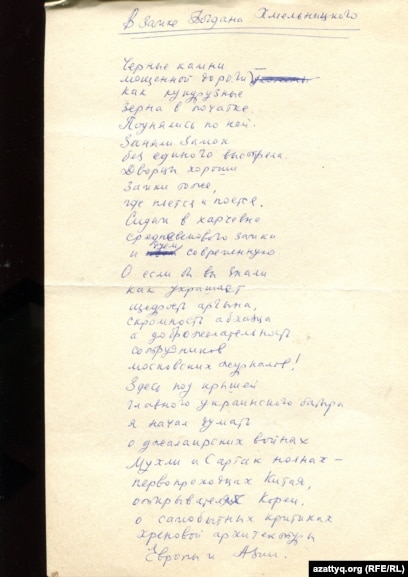 В замке Богдана Хмельницкого
Черные камни
мощенной дороги –
как кукурузные
зерна в початке.
Поднялись по ней.
Заняли замок
без единого выстрела.
Дворцы хороши
Замки тоже,
где пьется и поется.
Сидим в харчевне
средневекового замка
и едим современную.
О если бы вы знали
как украшает
щедрость аргына,
скромность абхазца
а доброжелательность
сотрудников
московских журналов!
Здесь под крышей
главного украинского батыра
я начал думать
о джалаирских войнах
Мухли и Сартак нойнах –
первопроходцах Китая,
открывателях Кореи.
о самобытных критиках
хреновой архитектуры
Европы и Азии.
azattyq.org (RFE/RL)